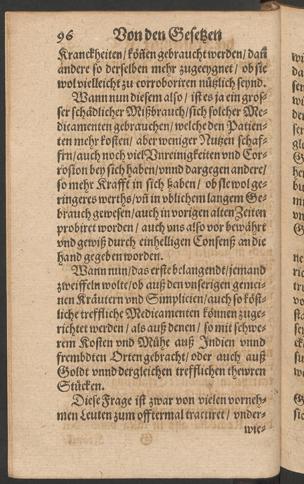 96 Von den Gesetzen
Kranckheiten/ köñen gebraucht werden/ dañ
andere so derselben mehr zugeeygnet/ ob sie
wol vielleicht zu corroboriren nützlich seynd.
Wann nun diesem also/ ist es ja ein gros-
ser schädlicher Mißbrauch/ sich solcher Me-
dicamenten gebrauchen/ welche den Patien-
ten mehr kosten/ aber weniger Nutzen schaf-
fen/ auch noch viel Vnreinigkeiten vnd Cor-
rosion bey sich haben/ vnnd dargegen andere/
so mehr Krafft in sich haben/ ob sie wol ge-
ringeres werths/ vñ in vblichem langem Ge-
brauch gewesen/ auch in vorigen alten Zeiten
probiret worden/ auch vns also vor bewährt
vnd gewiß durch einhelligen Consenß an die
hand gegeben worden.
Wann nun/ das erste belangendt/ jemand
zweiffeln wolte/ ob auß den vnserigen gemei-
nen Kräutern vnd Simplicien/ auch so köst-
liche treffliche Medicamenten können zuge-
richtet werden/ als auß denen/ so mit schwe-
rem Kosten vnd Mühe auß Indien vnnd
frembdten Orten gebracht/ oder auch auß
Goldt vnnd dergleichen trefflichen thewren
Stücken.
Diese Frage ist zwar von vielen vorneh-
men Leuten zum offtermal tractiret/ vnder-
wie-